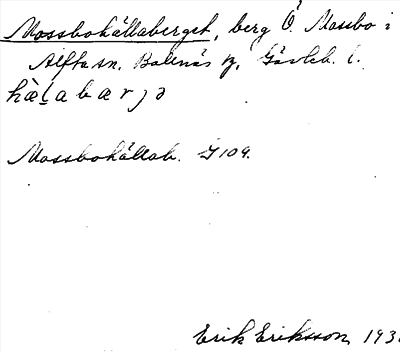 Mossbohällaberget, berg Ö. Mossbo i
Alfta sn. Bollnäs tg, Gävleb. l.
hàl̥abærjə
Mossbohällab. G109.
Erik Eriksson, 193